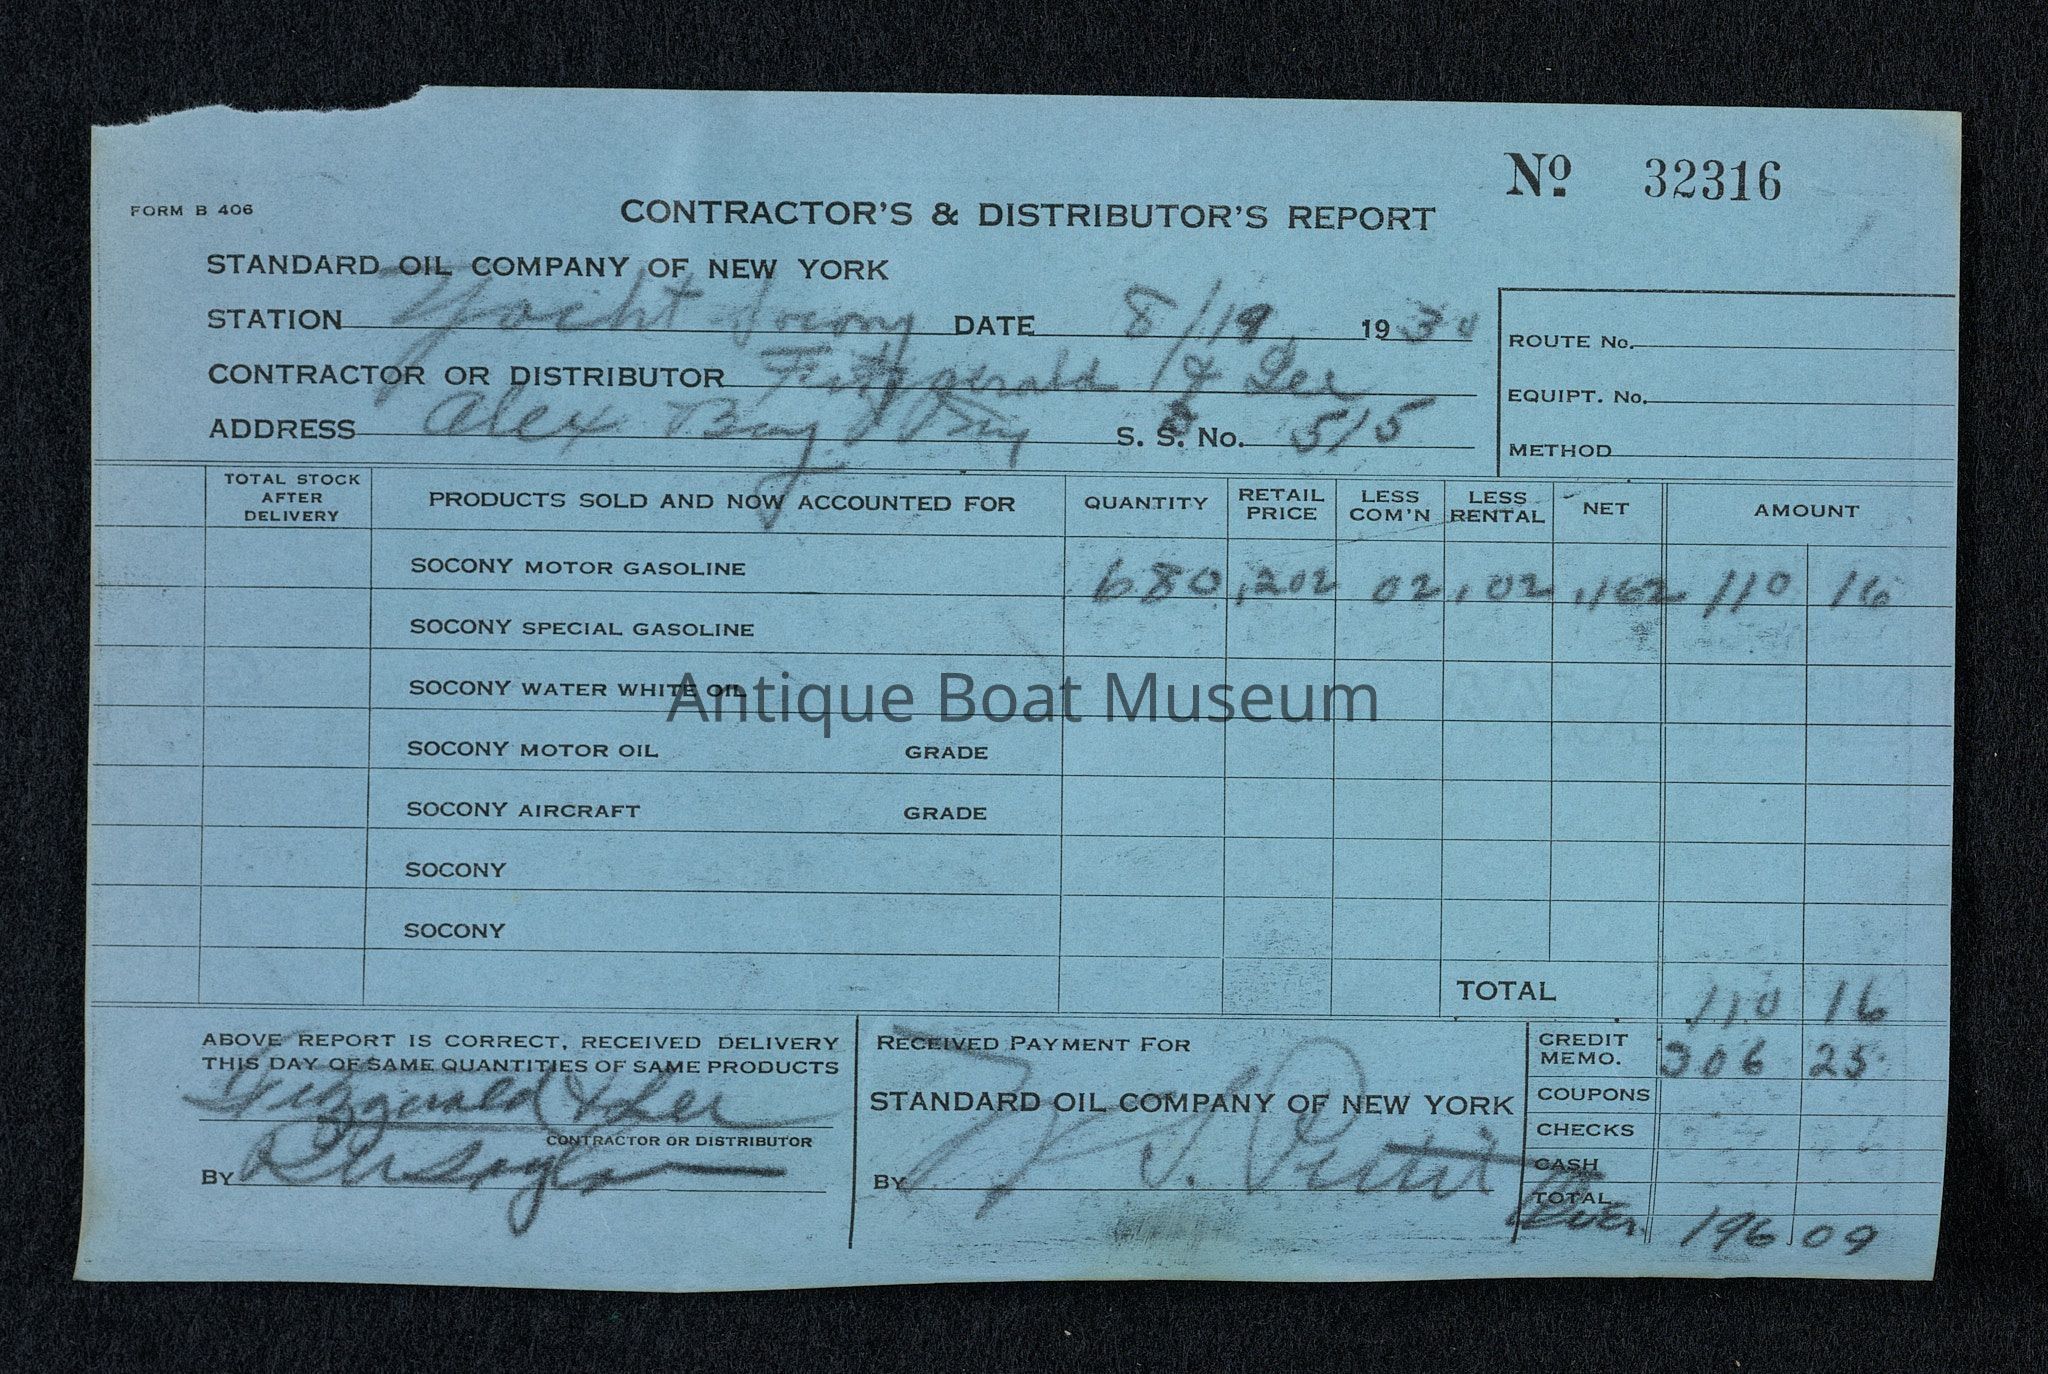 Nº 32316
FORM B 406
CONTRACTOR'S & DISTRIBUTOR'S REPORT
STANDARD OIL COMPANY OF NEW YORK
STATION Yacht Socony DATE 8/19 1930
CONTRACTOR OR DISTRIBUTOR Fitzgerald & Lee
ADDRESS Alex Bay S. S. No. 515
ROUTE No.
EQUIPT. No.
METHOD
TOTAL STOCK AFTER DELIVERY PRODUCTS SOLD AND NOW ACCOUNTED FOR QUANTITY RETAIL PRICE LESS COM'N LESS RENTAL NET AMOUNT
SOCONY MOTOR GASOLINE 680 .202 02 .02 .162 110 16
SOCONY SPECIAL GASOLINE
SOCONY WATER WHITE OIL
Antique Boat Museum
SOCONY MOTOR OIL GRADE
SOCONY AIRCRAFT GRADE
SOCONY
SOCONY
TOTAL 110 16
ABOVE REPORT IS CORRECT, RECEIVED DELIVERY
THIS DAY OF SAME QUANTITIES OF SAME PRODUCTS
Fitzgerald & Lee
CONTRACTOR OR DISTRIBUTOR
BY
RECEIVED PAYMENT FOR
STANDARD OIL COMPANY OF NEW YORK
BY
CREDIT MEMO. 306 25
COUPONS
CHECKS
CASH
TOTAL
Over 196 09